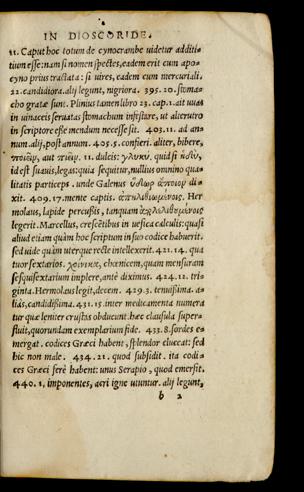 IN DIOSCORIDE.
11. Caput hoc totum de cynocrambe uidetur additi-
tium esse: nam si nomen spectes, eadem erit cum apo-
cyno prius tractata: si uires, eadem cum mercuriali.
22. candidiora. alij legunt, nigriora. 395. 20. stoma-
cho gratæ sunt. Plinius tamen libro 23. cap. 1. ait uuas
in uinaceis seruatas stomachum infestare, ut alterutro
in scriptore esse mendum necesse sit. 403. 11. ad an-
num. alij, post annum. 405. 5. confieri. aliter, bibere,
ποιεῖν, aut πιεῖν. 11. dulcis: γλυκύ. quid si ἡδύ,
id est suauis, legas: quia sequitur, nullius omnino qua-
litatis particeps. unde Galenus ὕδωρ ἄποιον di-
xit. 409. 17. mente captis. Her
molaus, lapide percussis, tanquam
legerit. Marcellus, crescētibus in uesica calculis: quasi
aliud etiam quàm hoc scriptum in suo codice habuerit.
sed uide quàm uterque rectè intellexerit. 421. 14. qua
tuor sextarios. χοίνικα, chœnicem, quam mensuram
sesquisextarium implere, antè diximus. 424. 11. tri-
ginta. Hermolaus legit, decem. 429. 3. tenuissima. a-
liâs, candidissima. 431. 15. inter medicamenta numera
tur quæ leniter crustas obducunt. hæc clausula super-
fluit, quorundam exemplarium fide. 433. 8. sordes e-
mergat. codices Græci habent, splendor eluceat: sed
hic non male. 434. 21. quod subsidit. ita codi-
ces Græci ferè habent: unus Serapio, quod emersit.
440. 1. imponentes, acri igne utuntur. alij legunt,
b 2